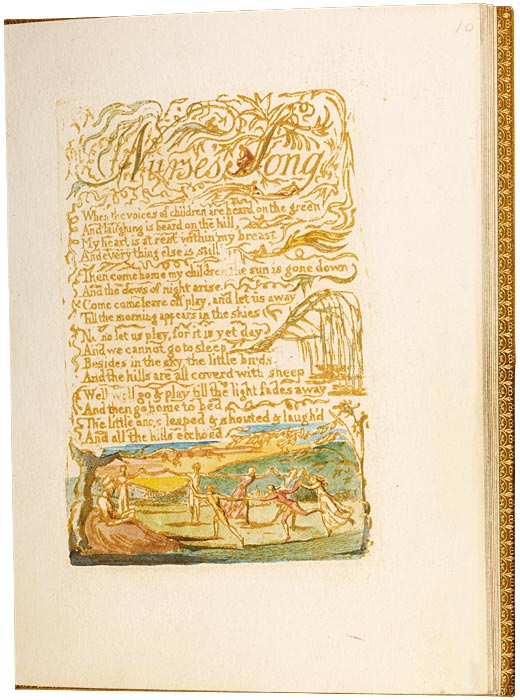 10
Nurses Song
When the voices of children are heard on the green
And laughing is heard on the hill,
My heart is at rest within my breast
And every thing else is still
Then come home my children, the sun is gone down
And the dews of night arise
Come come leave off play, and let us away
Till the morning appears in the skies
No no let us play, for it is yet day
And we cannot go to sleep
Besides in the sky, the little birds fly
And the hills are all coverd with sheep
Well well go & play till the light fades away
And then go home to bed
The little ones leaped & shouted & laugh'd
And all the hills ecchoed